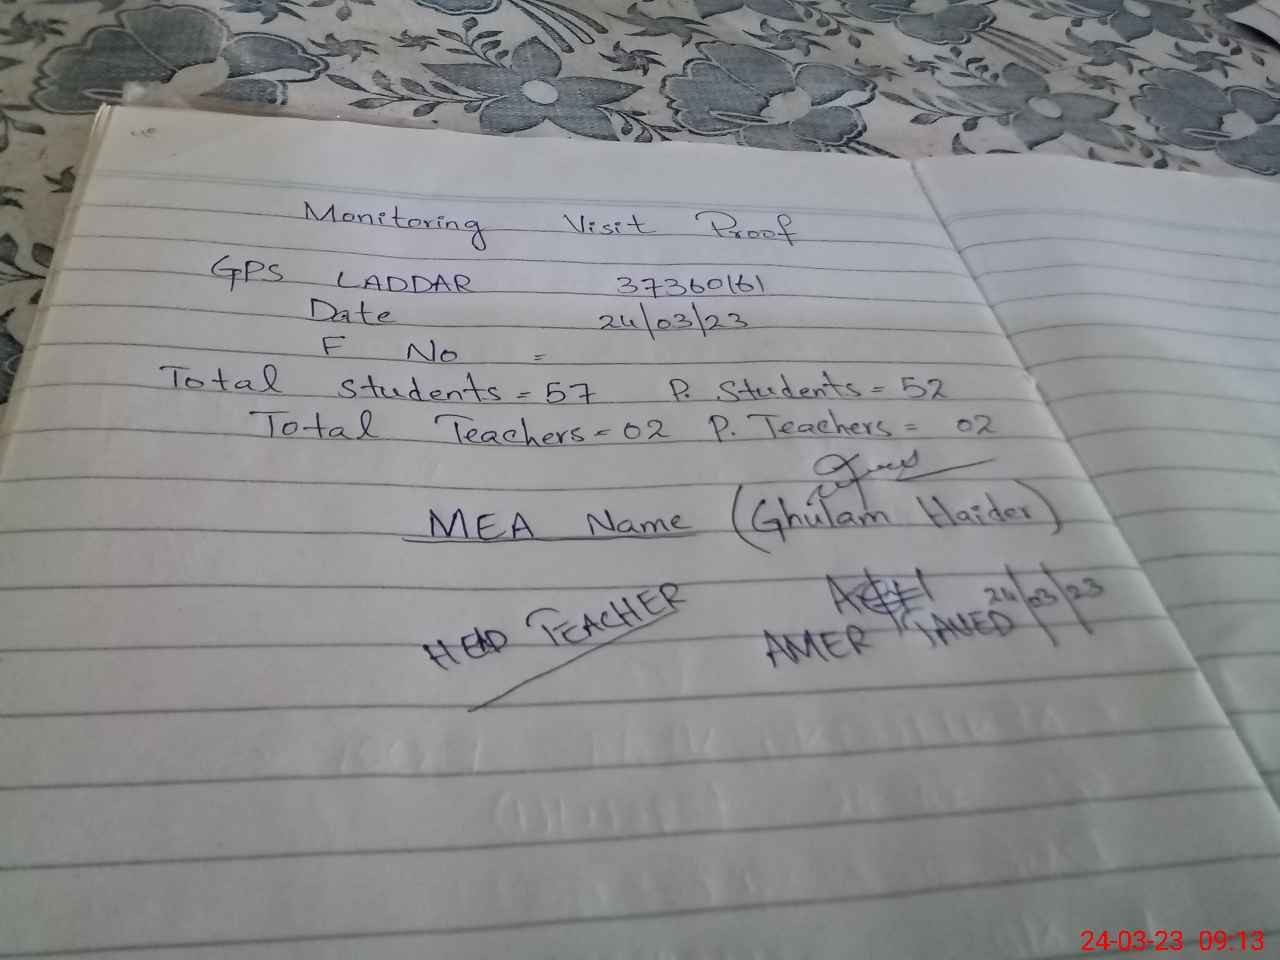 Monitoring Visit Proof
GPS LADDAR 37360161
Date 24/03/23
F No =
Total students = 57 P. Students = 52
Total Teachers = 02 P. Teachers = 02
MEA Name (Ghulam Haider)
HEAD TEACHER 24/03/23
AMER JAVED
24-03-23 09:13